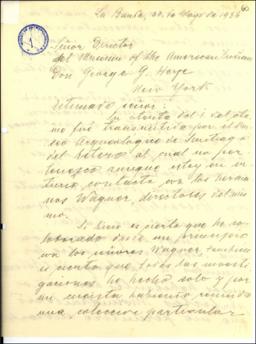 La Banda, 20 de Mayo de 1936
Señor Director
del Museum of the American Indian
Don George G. Heye
New York
Estimado señor:
Su atenta del 1 del
me fué transmitida por el Museo
Arqueológico de Santiago
del Estero al cual no per-
tenezco aunque estoy en
contacto con los herma-
nos Wagner, directores del mis-
mo.
Si bien es cierto que he co-
laborado desde un principio
con los señores Wagner, también
es cierto que todas las investi-
gaciones he hecho solo y por
mi cuenta habiendo reunido
una colección particular